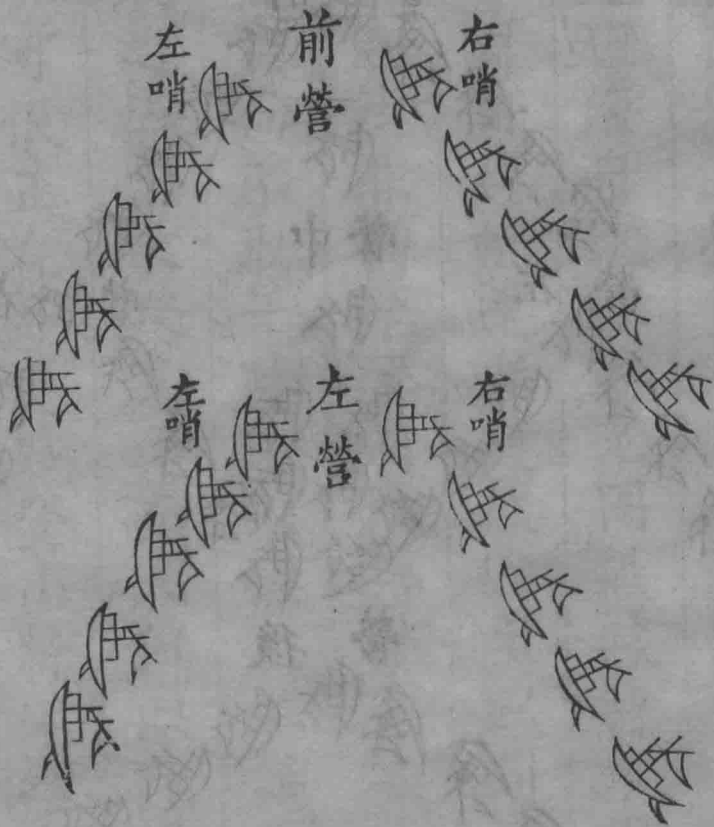 右哨
前營
左哨
右哨
左營
左哨